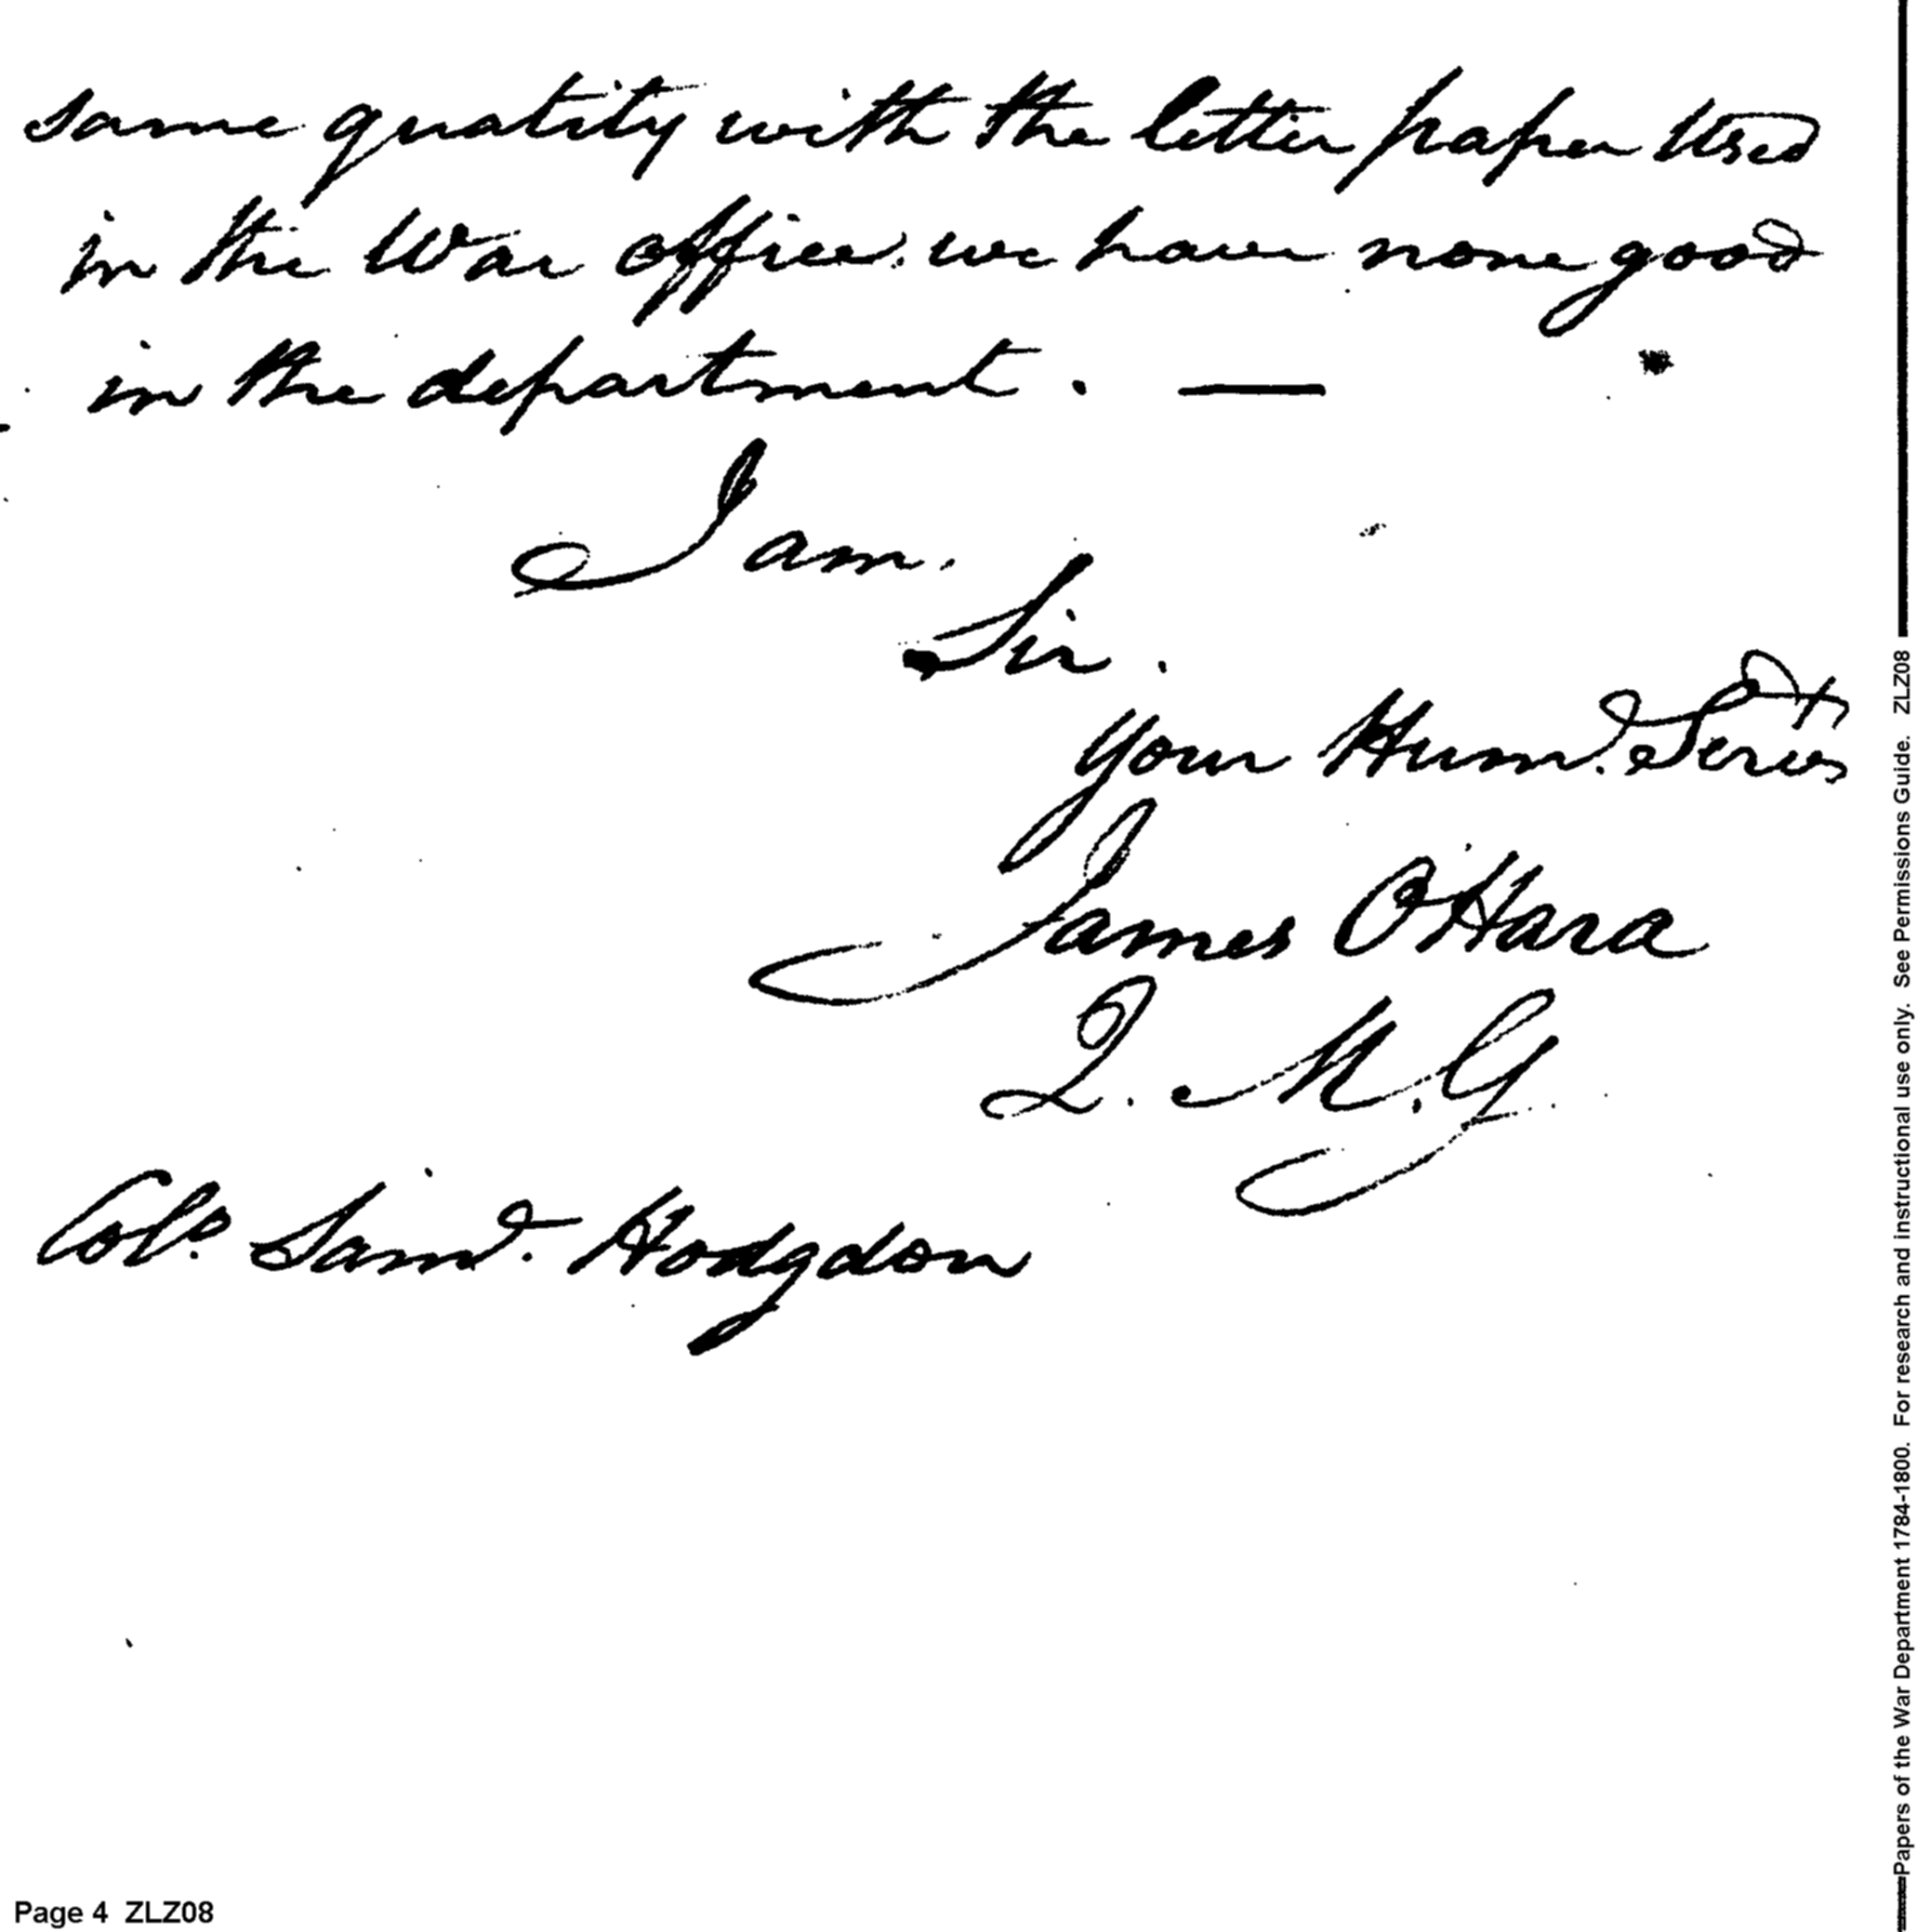 same quality with the letter paper Used
in the War office. we have none good
in the department. —
I am.
Sir.
Your Humd. Servt
James O'Hara
Q. M. G
Colo. Saml. Hodgdon
Page 4 ZLZ08
Papers of the War Department 1784-1800. For research and instructional use only. See Permissions Guide. ZLZ08